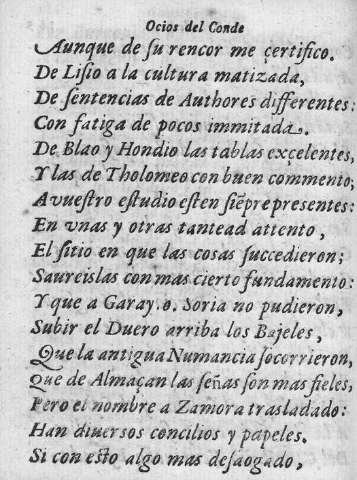 Ocios del Conde
Aunque de ſu rencor me çertifico.
De Liſio a la cultura matizada,
De ſentencias de Authores differentes:
Con fatiga de pocos immitada.
De Blao y Hondio las tablas exçelentes,
Y las de Tholomeo con buen commento;
A vueſtro eſtudio eſten ſiẽpre preſentes:
En vnas y otras tantead attento,
El ſitio en que las coſas ſuccedieron;
Saureislas con mas cierto fundamento:
Y que a Garay .o. Soria no pudieron,
Subir el Duero arriba los Bajeles,
Que la antigua Numancia ſocorrieron,
Que de Almaçan las ſeñas ſon mas fieles,
Pero el nombre a Zamora trasladado:
Han diuersos concilios y papeles.
Si con eſto algo mas deſaogado,